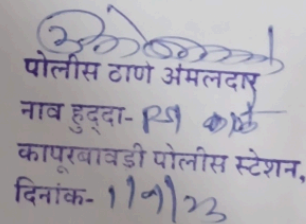 पोलीस ठाणे अंमलदार
नाव हुद्दा- PSI
कापूरबावडी पोलीस स्टेशन,
दिनांक-